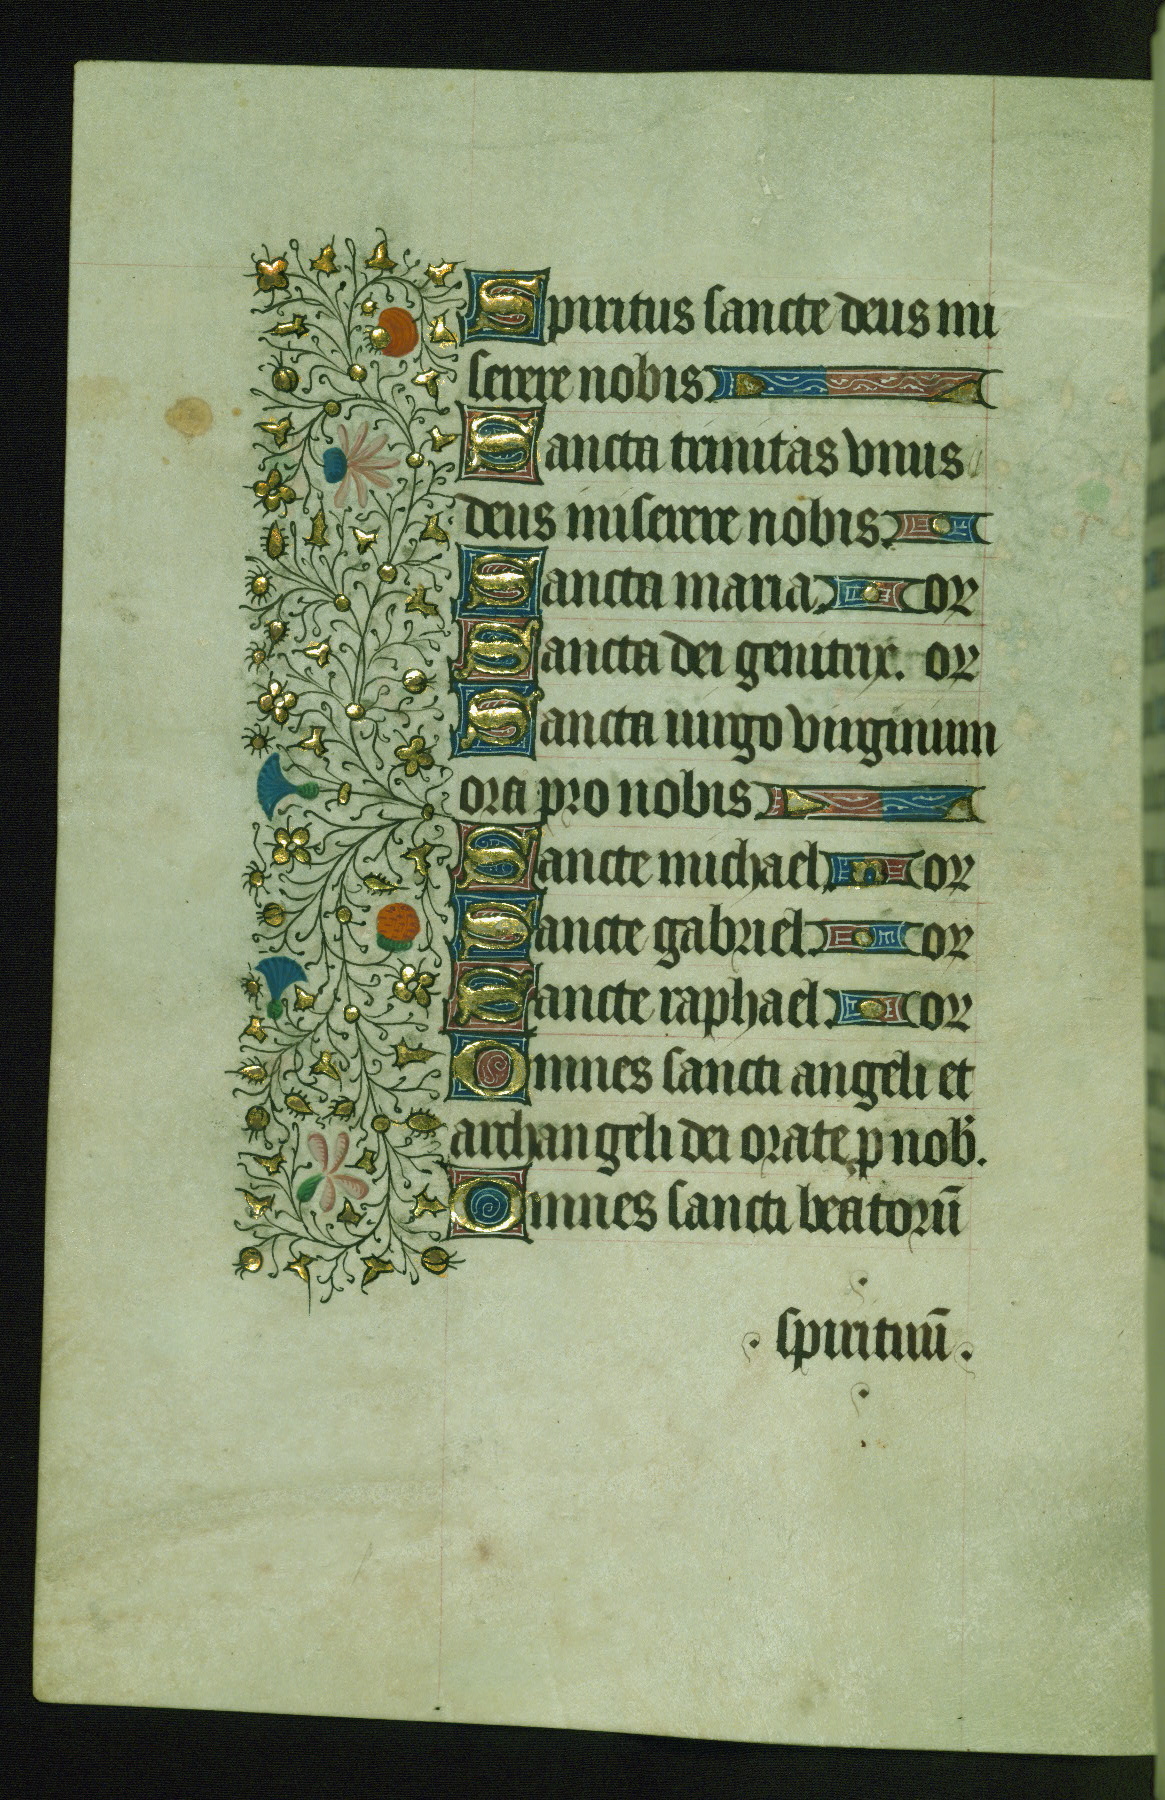 Spiritus sancte deus mi
serere nobis
Sancta trinitas vnus
deus miserere nobis.
Sancta maria. or
Sancta dei genitrix. or
Sancta uirgo virginum
ora pro nobis
Sancte michael. or
Sancte gabriel. or
Sancte raphael. or
Omnes sancti angeli et
archangeli dei orate p nob̄.
Omnes sancti beatorū
. spirituū .